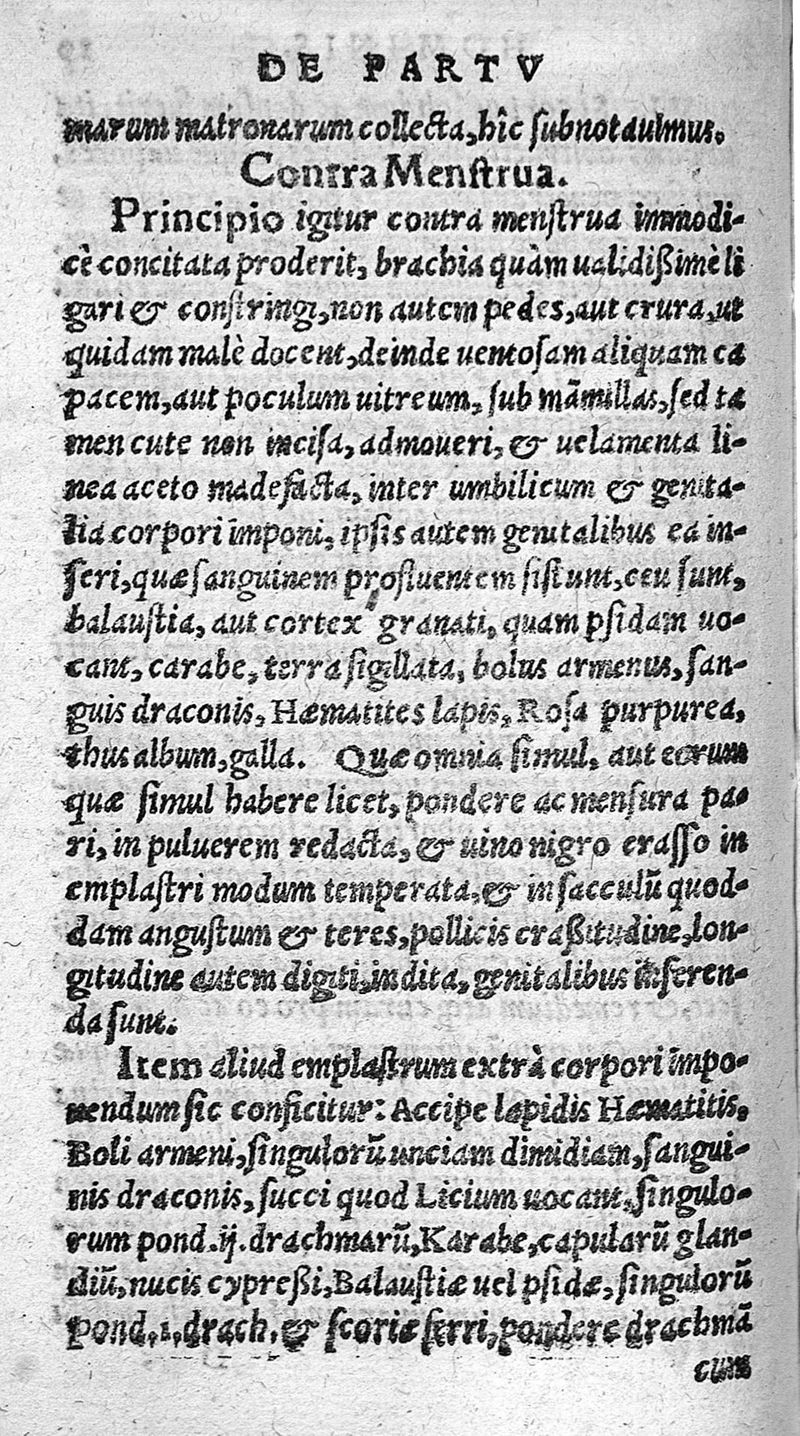 DE PARTV
marum matronarum collecta, hîc subnotauimus.
Contra Menstrua.
Principio igitur contra menstrua immodi-
cè concitata proderit, brachia quàm ualidißimè li
gari & constringi, non autem pedes, aut crura, ut
quidam malè docent, deinde uentosam aliquam ca
pacem, aut poculum uitreum, sub mãmillas, sed ta
men cute non incisa, admoueri, & uelamenta li-
nea aceto madefacta, inter umbilicum & genita-
lia corpori ĩmponi, ipsis autem genitalibus ea in-
seri, quæ sanguinem profluentem sistunt, ceu sunt,
balaustia, aut cortex granati, quam psidam uo-
cant, carabe, terra sigillata, bolus armenus, san-
guis draconis, Hæmatites lapis, Rosa purpurea,
thus album, galla. Quæ omnia simul, aut eorum
quæ simul habere licet, pondere ac mensura pa-
ri, in puluerem redacta, & uino nigro erasso in
emplastri modum temperata, & in sacculũ quod-
dam angustum & teres, pollicis craßitudine, lon-
gitudine autem digiti, indita, genitalibus inseren-
da sunt.
Item aliud emplastrum extrà corpori ĩmpo-
nendum sic conficitur: Accipe lapidis Hæmatitis,
Boli armeni, singulorũ unciam dimidiam, sangui-
nis draconis, succi quod Licium uocant, singulo-
rum pond. ij. drachmarũ, Karabe, capularũ glan-
diũ, nucis cypreßi, Balaustiæ uel psidæ, singulorũ
pond. 1, drach. & scoriæ ferri, pondere drachmã
cum